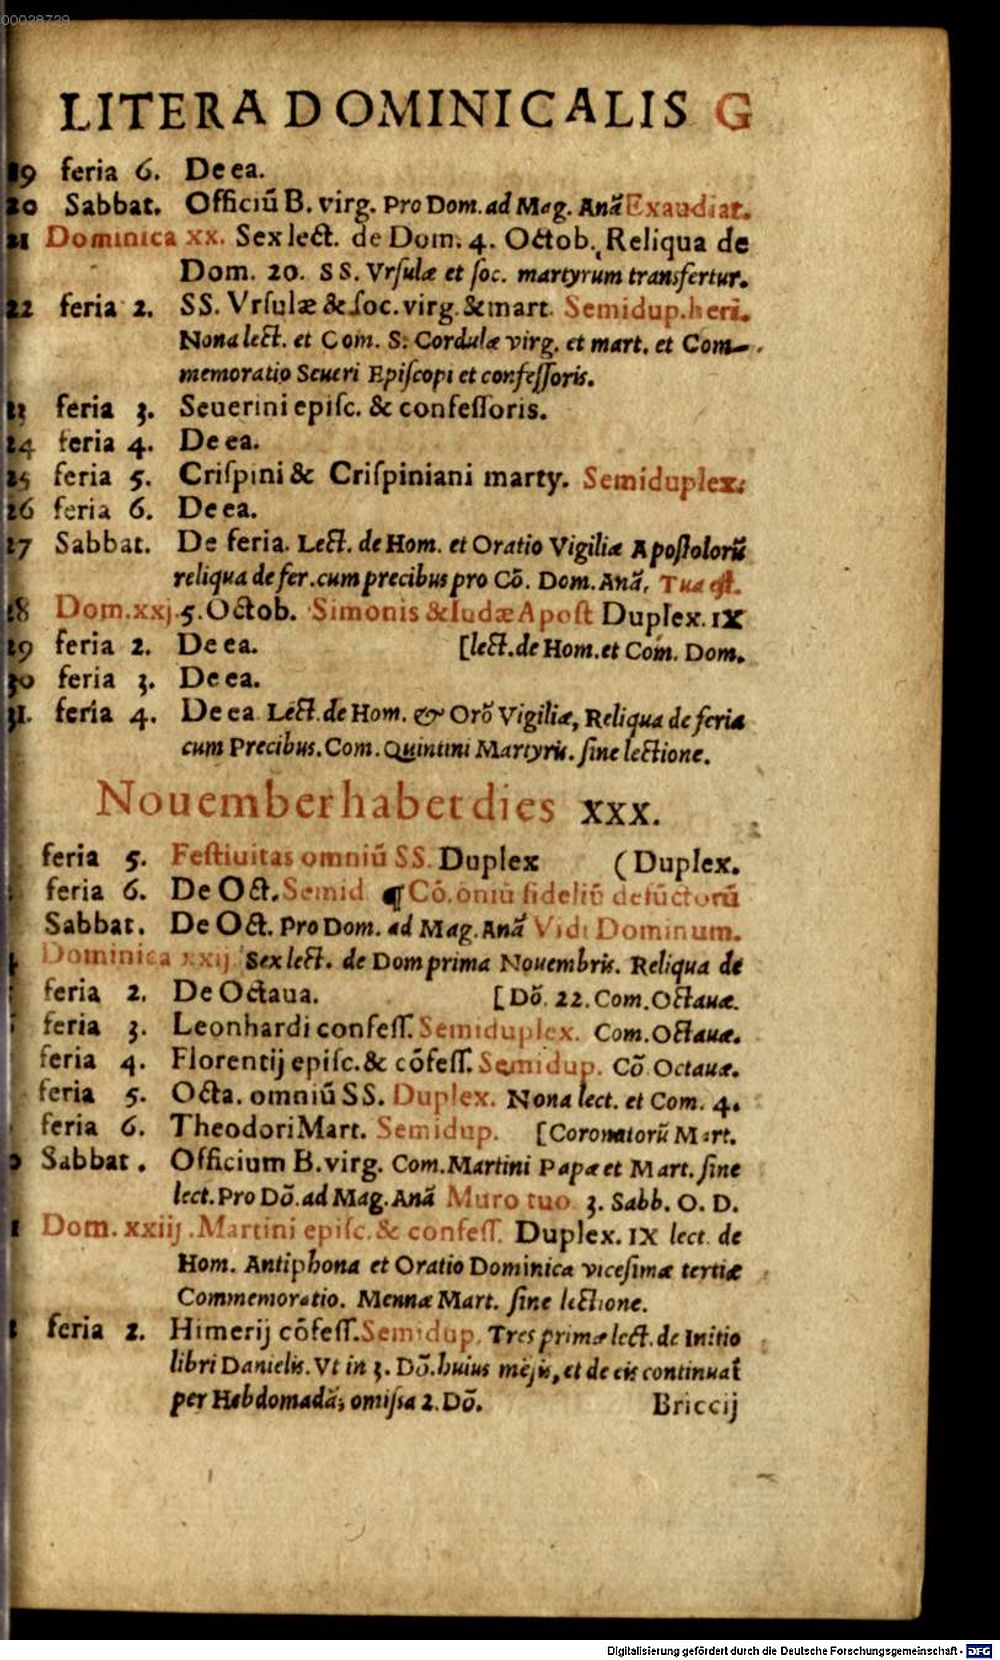 00028729
LITERA DOMINICALIS G
19 feria 6. De ea.
20 Sabbat. Officiũ B. virg. Pro Dom. ad Mag. Anã Exaudiat.
21 Dominica xx. Sex lect. de Dom. 4. Octob. Reliqua de
Dom. 20. SS. Vrſulæ et ſoc. martyrum transfertur.
22 feria 2. SS. Vrſulæ & ſoc. virg. & mart. Semidup. heri.
Nona lect. et Com. S. Cordulæ virg. et mart. et Com-
memoratio Seueri Epiſcopi et confeſſoris.
23 feria 3. Seuerini epiſc. & confeſſoris.
24 feria 4. De ea.
25 feria 5. Criſpini & Criſpiniani marty. Semiduplex.
26 feria 6. De ea.
27 Sabbat. De feria. Lect. de Hom. et Oratio Vigiliæ Apoſtolorũ
reliqua de fer. cum precibus pro Cõ. Dom. Anã. Tua eſt.
28 Dom. xxj. 5. Octob. Simonis & Iudæ Apoſt Duplex. IX
29 feria 2. De ea. [lect. de Hom. et Com. Dom.
30 feria 3. De ea.
31. feria 4. De ea Lect. de Hom. & Orõ Vigiliæ, Reliqua de feria
cum Precibus. Com. Quintini Martyris. ſine lectione.
Nouember habet dies XXX.
feria 5. Feſtiuitas omniũ SS. Duplex (Duplex.
feria 6. De Oct. Semid ¶ Cõ. oniũ fideliũ defũctorũ
Sabbat. De Oct. Pro Dom. ad Mag. Anã Vidi Dominum.
Dominica xxij Sex lect. de Dom prima Nouembris. Reliqua de
feria 2. De Octaua. [Dõ. 22. Com. Octauæ.
feria 3. Leonhardi confeſſ. Semiduplex. Com. Octauæ.
feria 4. Florentij epiſc. & cõfeſſ. Semidup. Cõ Octauæ.
feria 5. Octa. omniũ SS. Duplex. Nona lect. et Com. 4.
feria 6. Theodori Mart. Semidup. [Coronatorũ Mart.
Sabbat. Officium B. virg. Com. Martini Papæ et Mart. ſine
lect. Pro Dõ. ad Mag. Anã Muro tuo 3. Sabb. O. D.
Dom. xxiij. Martini epiſc. & confeſſ. Duplex. IX lect. de
Hom. Antiphona et Oratio Dominica viceſimæ tertiæ
Commemoratio. Mennæ Mart. ſine lectione.
feria 2. Himerij cõfeſſ. Semidup. Tres primæ lect. de Initio
libri Danielis. Vt in 3. Dõ. huius mẽſis, et de eis continuat
per Hebdomadã, omiſſa 2. Dõ. Briccij
Digitalisierung gefördert durch die Deutsche Forschungsgemeinschaft - DFG